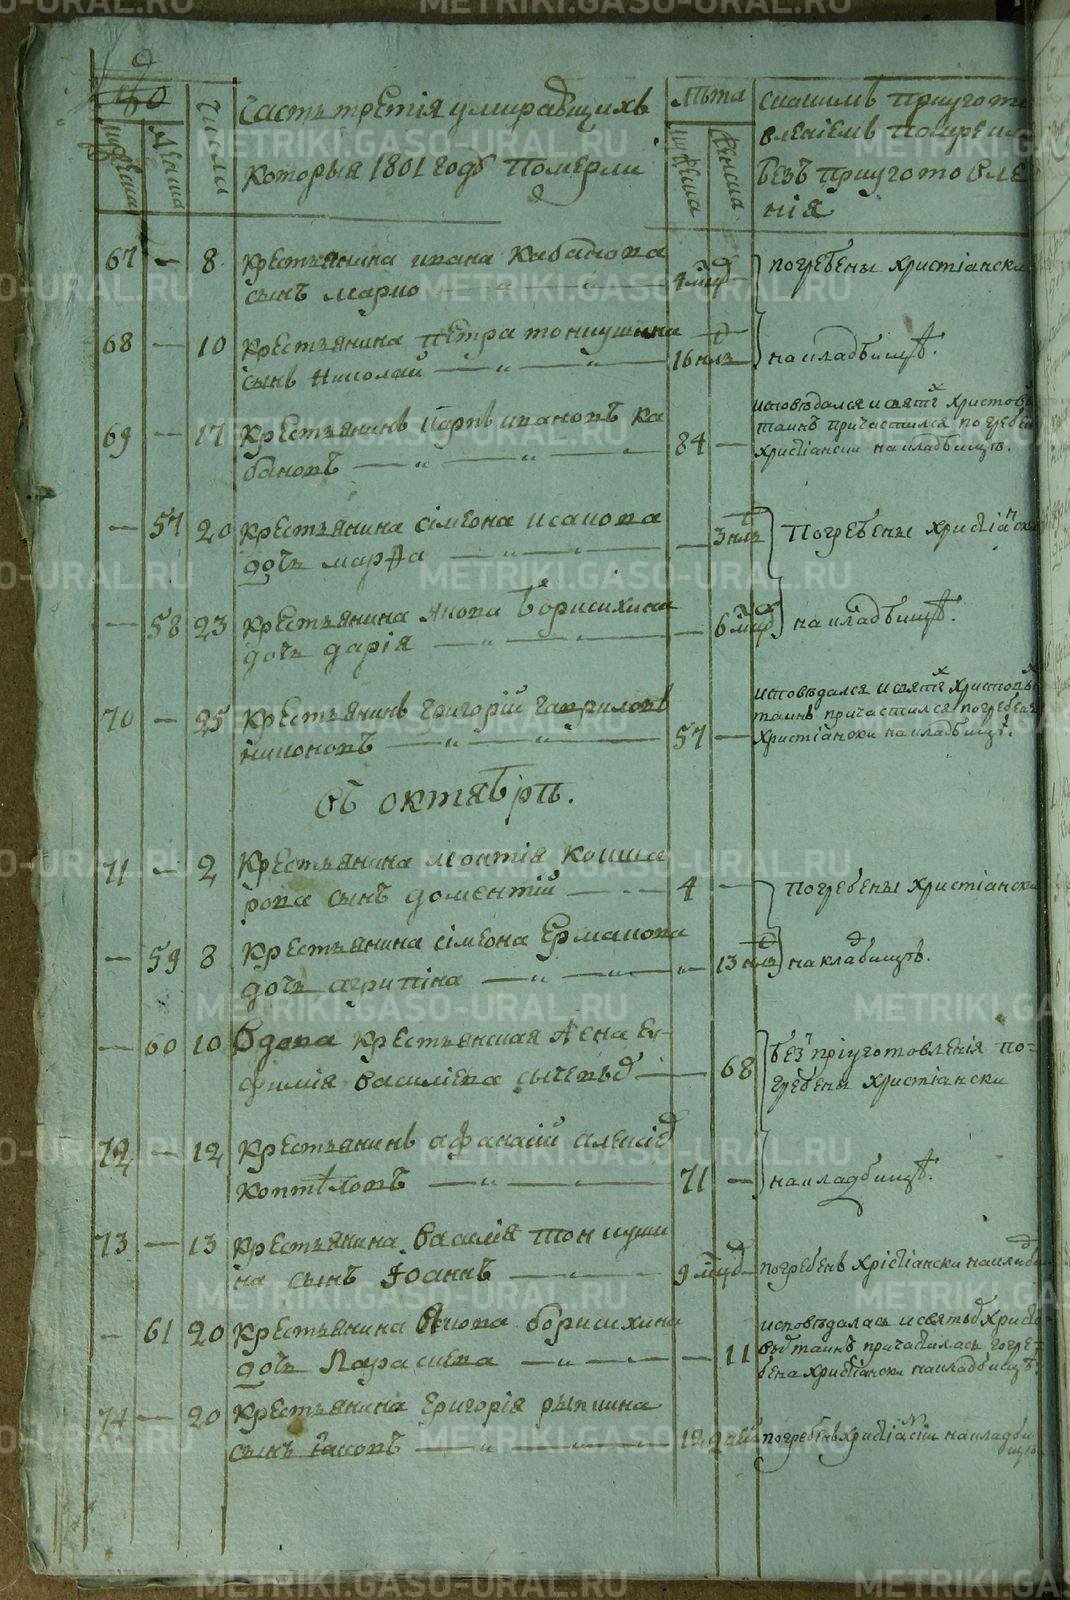 9
Число
Часть третія умирающихъ
которыя 1801 году Померли
Лѣта
мужеска
женска
Без приуготовле
нія
67 — 8 Крестьянина ивана Кабанова
сынъ марко 4 мцд погребены христіански
68 — 10 Крестьянина петра тонкушина
сынъ николай 16 нлъ на кладбищѣ.
69 — 17 Крестьянинъ карпъ ивановъ ка
бановъ 84 —
исповѣдался и святых христовых
таинъ причастился погребен
христіански на кладбищѣ.
— 57 20 Крестьянина сімеона исакова
дочь марфа — 3 нлъ Погребены христіански
— 58 23 Крестьянина Якова борисихина
дочь дарія — 6 мцд на кладбищѣ.
70 — 25 Крестьянинъ григорій гавриловъ
никоновъ 57 —
исповѣдался и святых христовых
таинъ причастился погребен
христіански на кладбищѣ.
Въ октябрѣ.
71 — 2 Крестьянина леонтія кокша
рова сынъ доментій 4 — погребены христіански
— 59 8 Крестьянина сімеона Ермакова
дочь агрипіна 13 нлъ на кладбищѣ.
— 60 10 Вдова крестьянская жена Ев
фимия василиева 68 без пріуготовленія по-
гребены христіански
72 — 12 Крестьянинъ афанасій алексіев
коптѣловъ 71 — на кладбищѣ.
73 — 13 Крестьянина василія тонкуши
на сынъ Іоаннъ 9 мцд погребенъ христіански на кладби
— 61 20 Крестьянина Якова борисихина
дочь Парасцева — 11
исповѣдалась и святых христо
вых таинъ причастилась погре-
бена христіански на кладбищѣ.
74 — 20 Крестьянина григорія
сынъ Іаковъ 12 дней погребенъ христіански на кладби
щѣ
METRIKI.GASO-URAL.RU